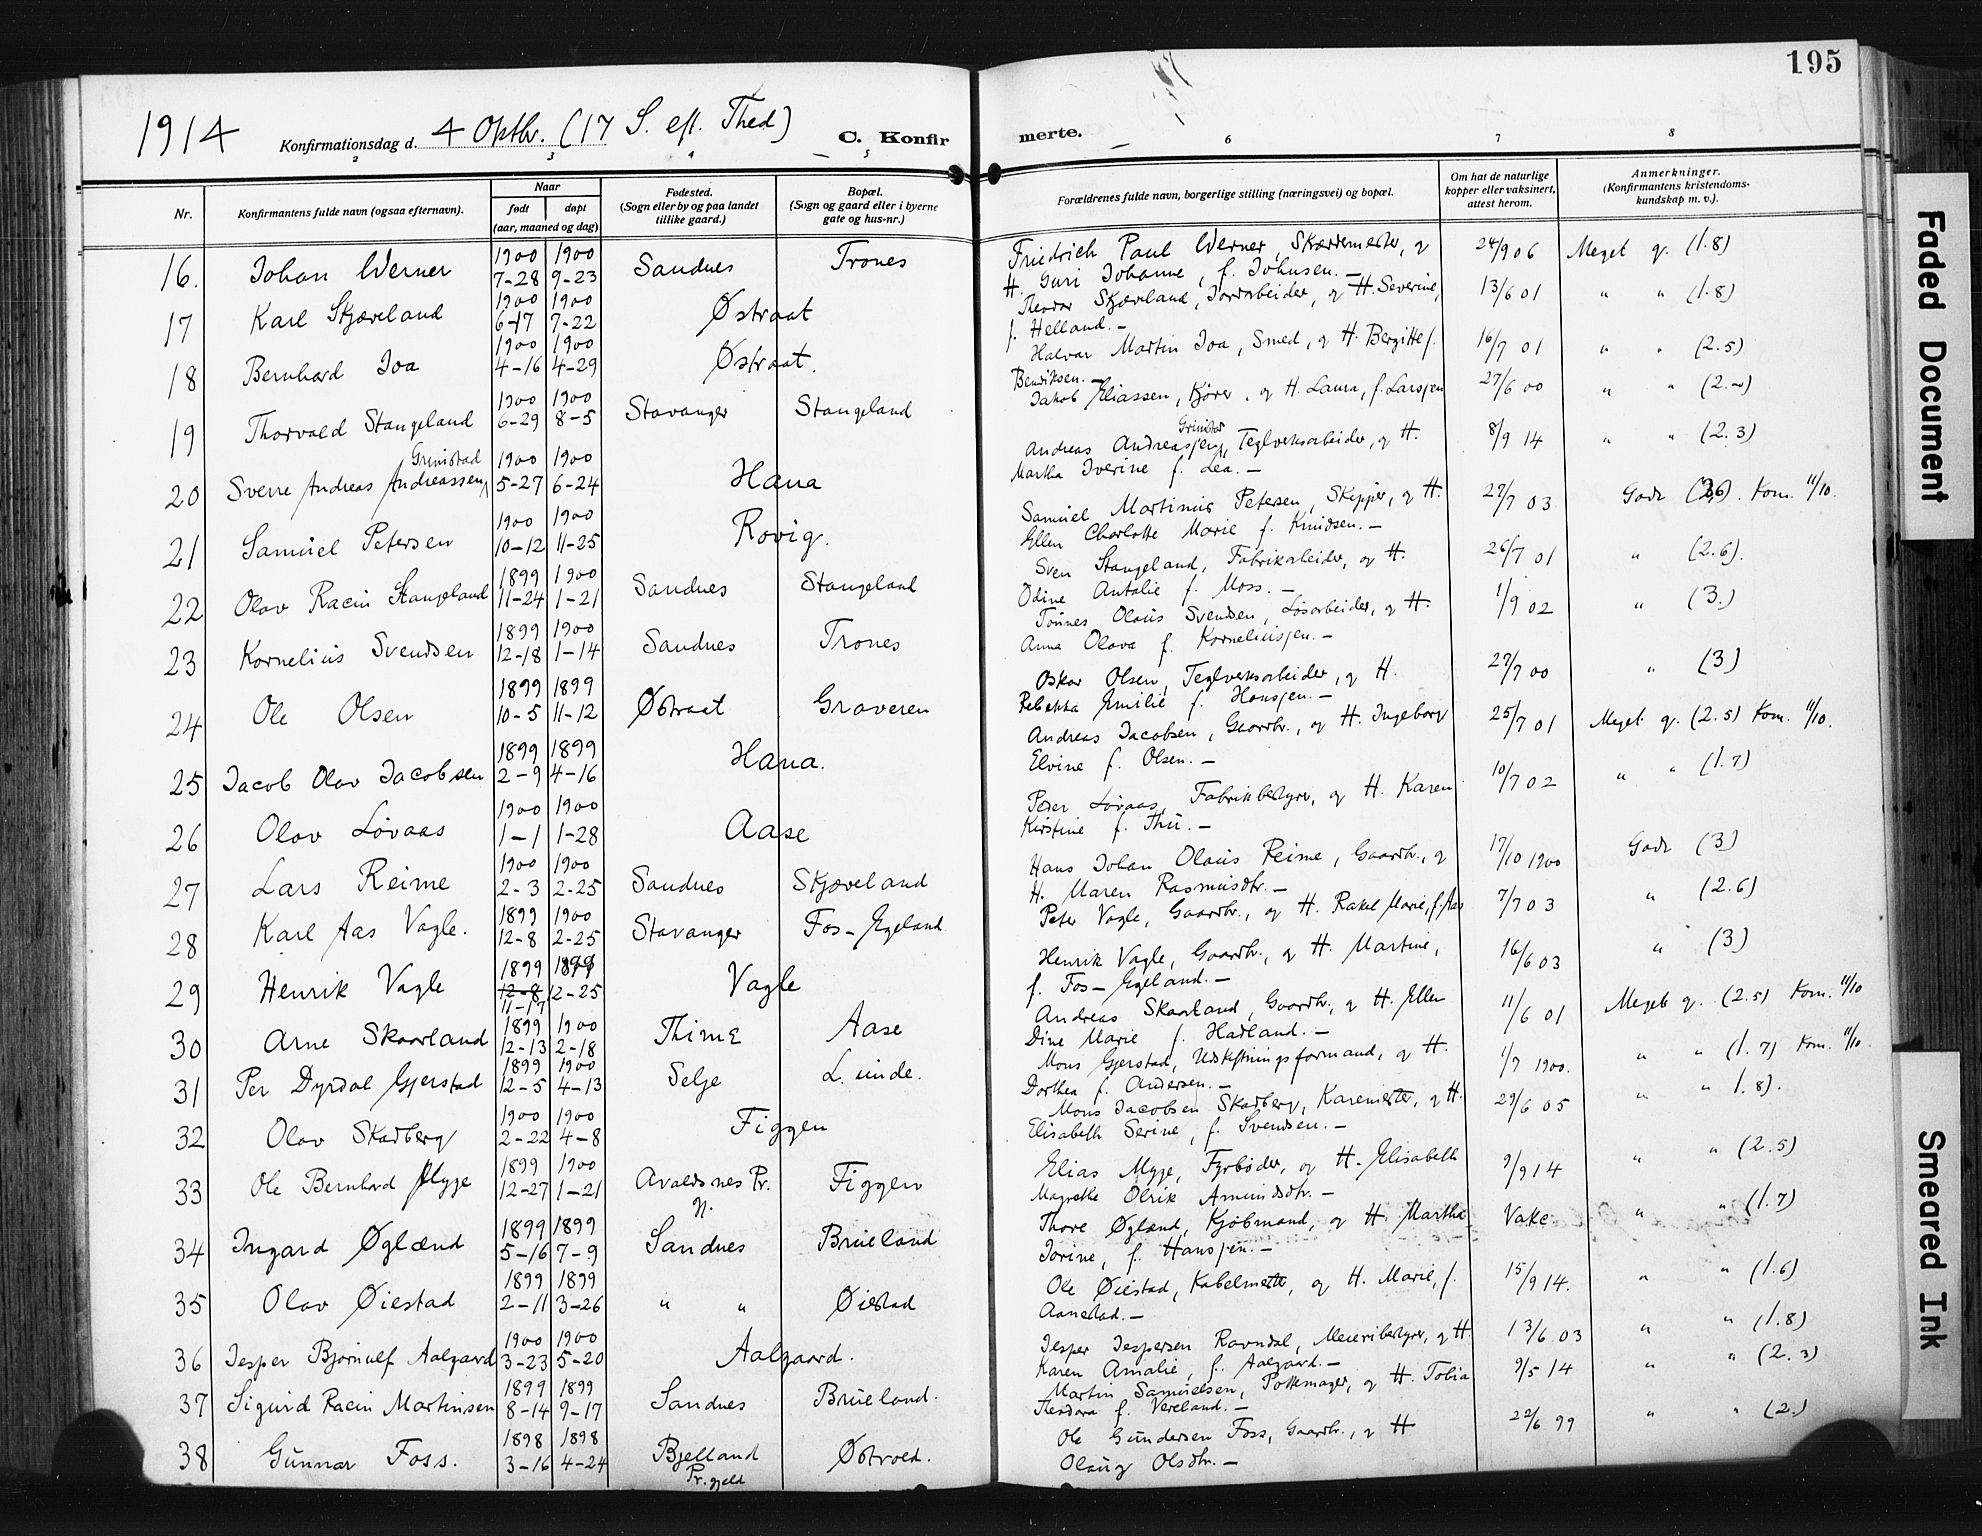 195
1914 Konfirmationsdag d. 4 Oktbr. (17 S. eft. Tred) C. Konfirmerte.
2 3 4 5 6 7 8
Nr. Konfirmantens fulde navn (ogsaa efternavn). Naar født døpt (aar, maaned og dag) Fødested. (Sogn eller by og paa landet tillike gaard.) Bopæl. (Sogn og gaard eller i byerne gate og hus-nr.) Forældrenes fulde navn, borgerlige stilling (næringsvei) og bopæl. Om hat de naturlige kopper eller vaksinert, attest herom. Anmerkninger. (Konfirmantens kristendoms-kundskap m. v.).
16. Johan Werner 1900 7-28 1900 9-23 Sandnes Trones Friedrich Paul Werner, og H. Guri Johanne, f. Johnsen. – 24/9 06 Meget g. (1.8)
17 Karl Skjæveland 1900 6-17 1900 7-22 Østraat Teodor Skjæveland, Jordarbeider, og H. Severine, f. Helland. – 13/6 01 " " (1.8)
18 Bernhard Joa 1900 4-16 1900 4-29 Østraat. Halvar Martin Joa, Smed, og H. Bergitte f. Bendiksen. – 16/7 01 " " (2.5)
19 Thorvald Stangeland 1900 6-29 1900 8-5 Stavanger Stangeland Jakob Eliassen, Kjører, og H. Laura, f. Larsen 27/6 00 " "
20 Sverre Andreas Andreassen Grimstad 1900 5-27 1900 6-24 Hana Andreas Andreassen Grimstad, Teglverksarbeider, og H. Martha Iverine f. Lea. – 8/9 14 " " (2.3)
21 Samuel Petersen 1900 10-12 1900 11-25 Rovig. Samuel Martinus Petersen, Skipper, og H. Ellen Charlotte Marie f. Knudsen. – 27/7 03 Godt Kom. 11/10.
22 Olav Racin Stangeland 1899 11-24 1900 1-21 Sandnes Stangeland Sven Stangeland, Fabrikarbeider, og H. Odine Antalie f. Moss. – 26/7 01 " (2.6).
23 Kornelius Svendsen 1899 12-18 1900 1-14 Sandnes Trones Tønnes Olaus Svendsen, Løsarbeider, og H. Anna Olava f. Korneliusen. – 1/9 02 " (3.)
24 Ole Olsen 1899 10-5 1899 11-12 Østraat Graveren Oskar Olsen, Teglverksarbeider, og H. Rebekka Emilie f. Hansen. – 27/7 00 " (3)
25 Jacob Olav Jacobsen 1899 2-9 1899 4-16 Hana. Andreas Jacobsen, Gaardbr., og H. Ingeborg Elvine f. Olsen. – 25/7 01 Meget g. (2.5) Kom. 11/10.
26 Olav Løvaas 1900 1-1 1900 1-28 Aase Peder Løvaas, Fabrikbestyrer, og H. Karen Kirstine f. Thu. – 10/7 02 " " (1.7)
27 Lars Reime 1900 2-3 1900 2-25 Sandnes Skjæveland Hans Johan Olaus Reime, Gaardbr., og H. Maren Rasmusdtr. – 17/10 1900 Godt (3)
28 Karl Aas Vagle. 1899 12-8 1900 2-25 Stavanger Fos-Egeland Peter Vagle, Gaardbr., og H. Rakel Marie, f. Aas 7/7 03 " (2.6)
29 Henrik Vagle 1899 12-8 11-17 1899 12-25 Vagle Henrik Vagle, Gaardbr., og H. Martine, f. Fos-Egeland. – 16/6 03 " (3)
30 Arne Skaarland 1899 12-13 1900 2-18 Thime Aase Andreas Skaarland, Gaardbr., og H. Ellen Dine Marie f. Hadland. – 11/6 01 Meget g. (2.5) Kom. 11/10
31 Per Dyrdal Gjerstad 1899 12-5 1900 4-13 Selje Lunde. Mons Gjerstad, Udskiftningsformand, og H. Dorthea f. Andersen. – 1/7 1900. " " (1.7) Kom. 11/10.
32 Olav Skadberg 1900 2-22 1900 4-8 Figgen Mons Jacobsen Skadberg, og H. Elisabeth Serine, f. Svendsen. – 29/6 05 " " 1.8).
33 Ole Bernhard Myge 1899 12-27 1900 1-21 Avaldsnes Pr. N. Figgen Elias Myge, Fyrbøder, og H. Elisabeth Magrethe Olrik Amundsdtr. – 9/9 14 " " (2.5)
34 Ingard Øglænd 1899 5-16 1899 7-9 Sandnes Brueland Thore Øglænd, Kjøbmand, og H. Martha Jorine, f. Hansen. – Vake " " (1.7)
35 Olav Øiestad 1899 2-11 1899 3-26 " " Øiestad Ole Øiestad, og H. Marie, f. Aanestad. – 15/9 14. " " (1.6)
36 Jesper Bjørnulf Aalgaard 1900 3-23 1900 5-20 Aalgaard. Jesper Jespersen Ravndal, Meieribestyrer, og H. Karen Amalie, f. Aalgaard. – 13/6 03 " " (1.8)
37 Sigurd Racin Martinsen 1899 8-14 1899 9-17 Sandnes Brueland. Martin Samuelsen, Pottemager, og H. Tobia Teodora f. Vereland. – 9/5 14 " " (2.3)
38 Gunnar Foss. 1898 3-16 1898 4-24 Bjelland Pr.gjeld Østvold. Ole Gundersen Foss, Gaardbr., og H Olaug Olsdtr. – 22/6 99 " " (2.)
Faded Document
Smeared Ink